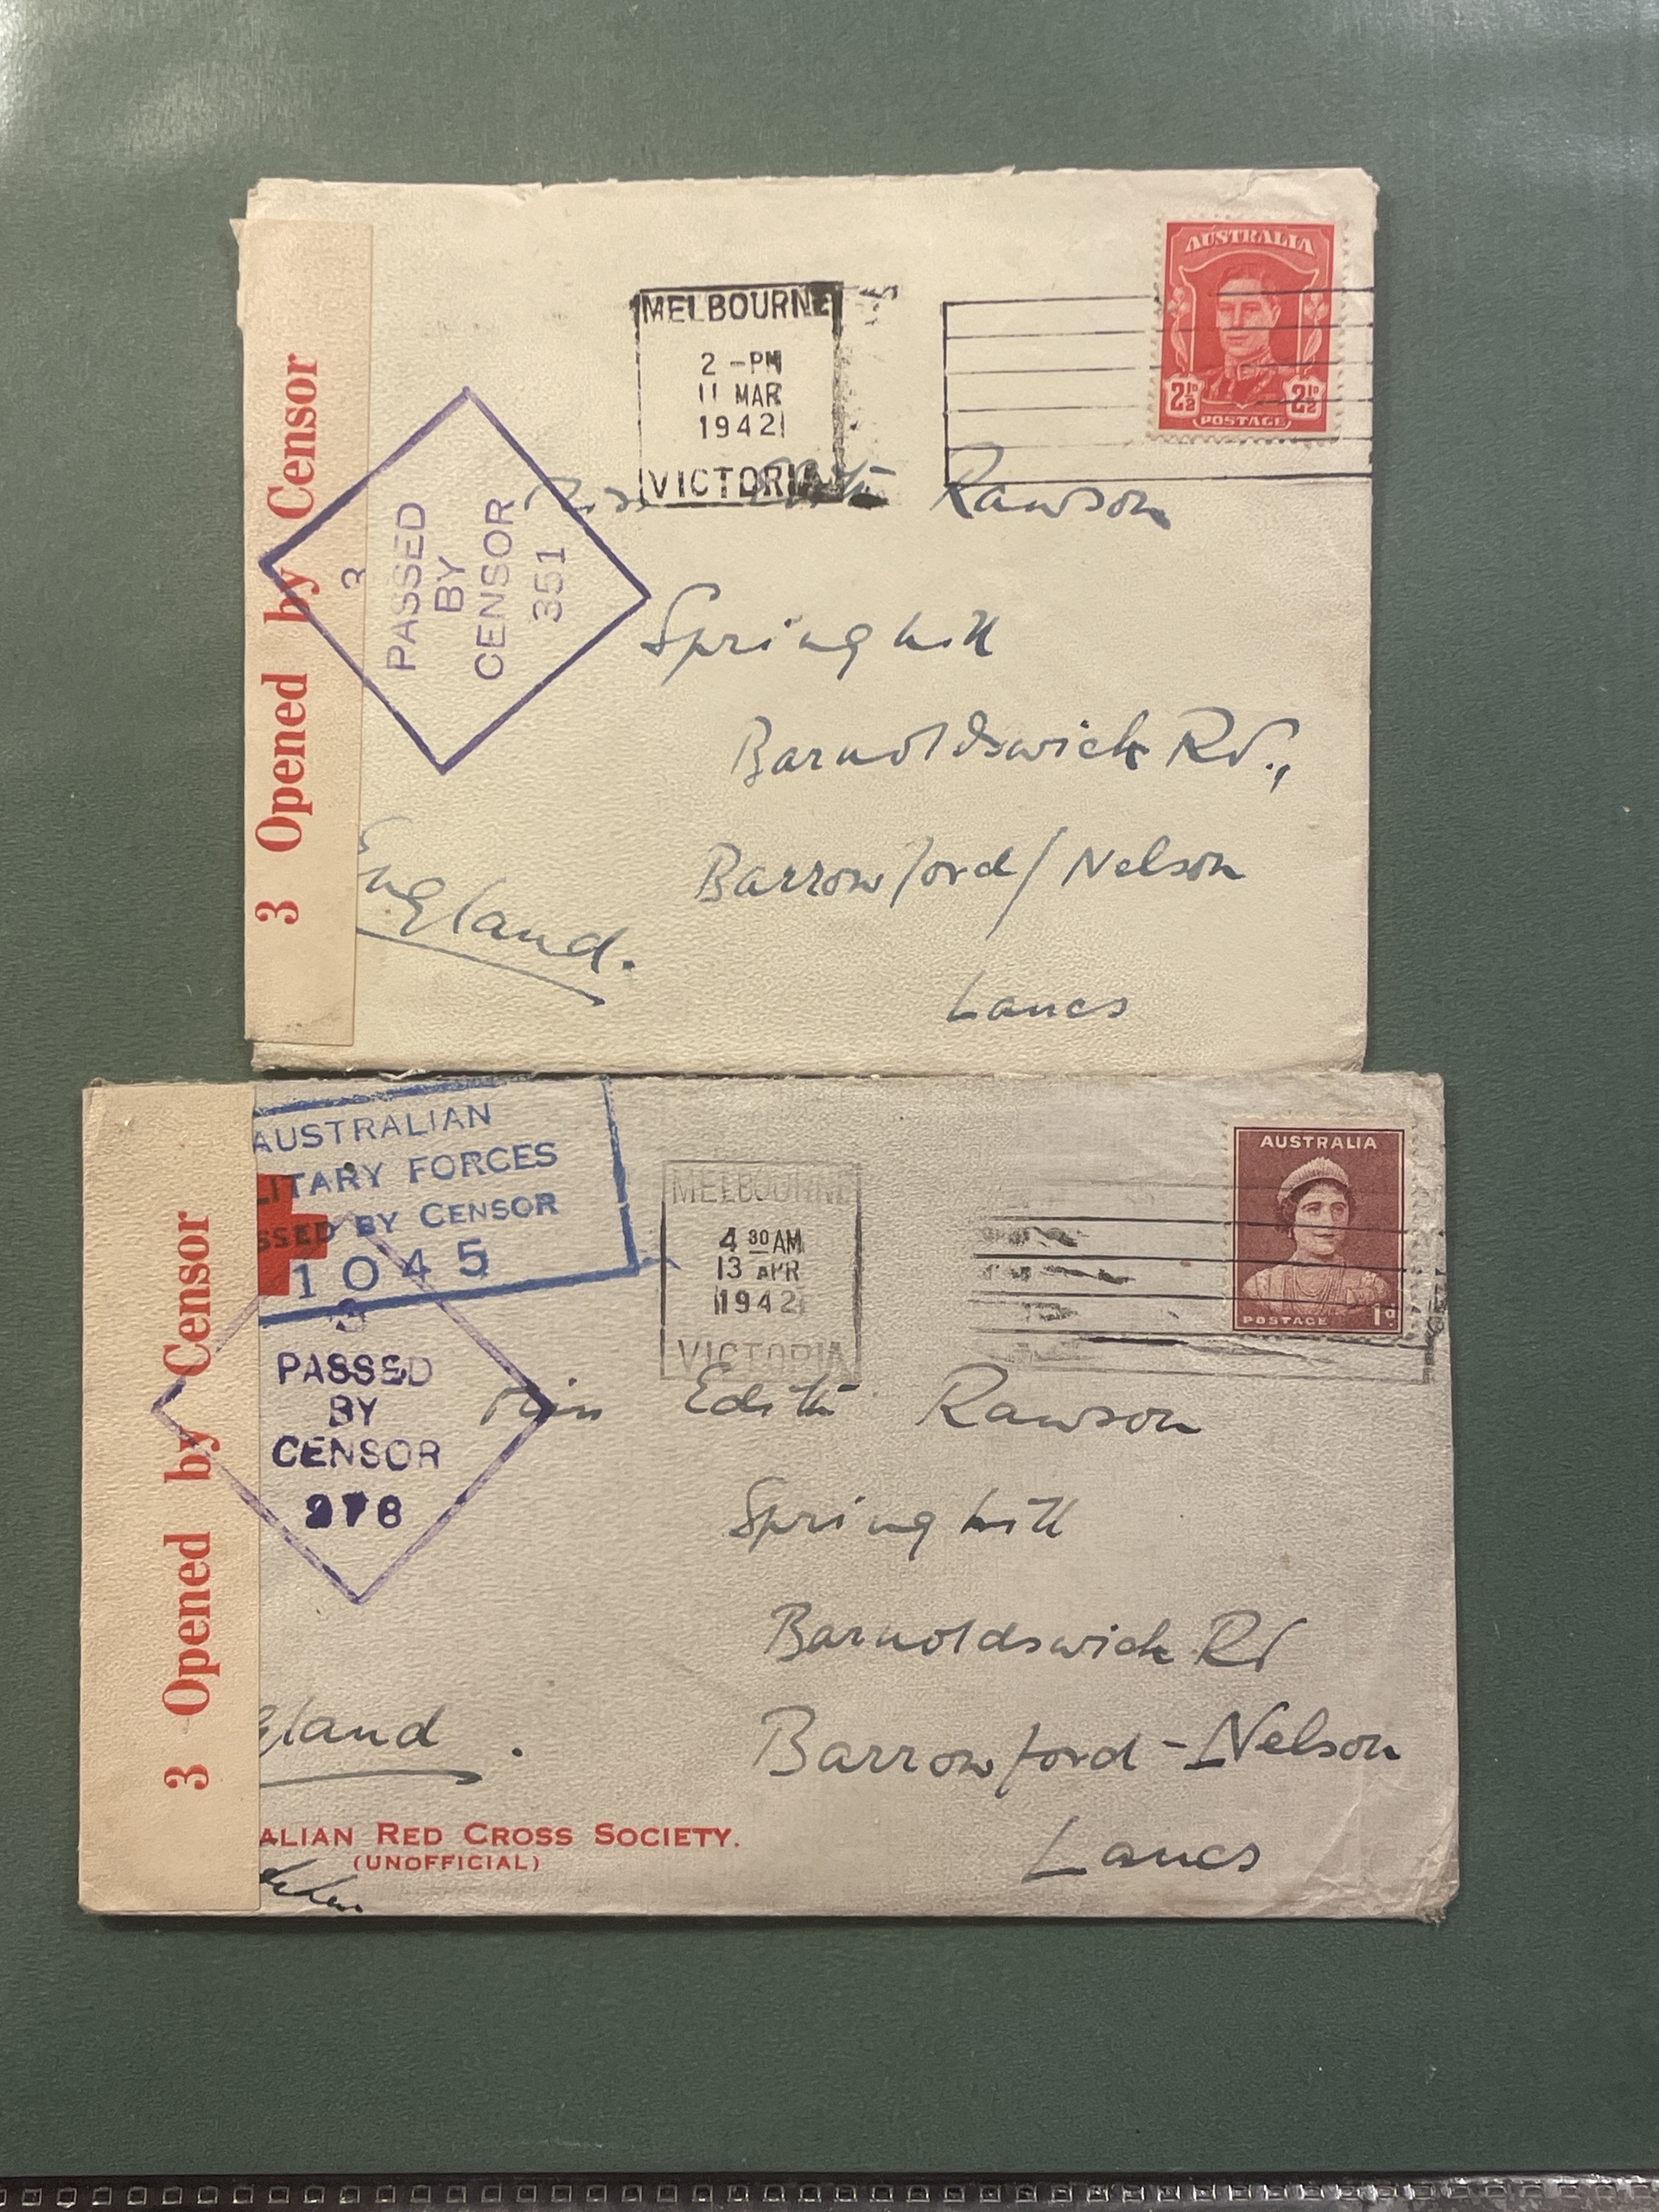 AUSTRALIA
2½D 2½D
POSTAGE
MELBOURNE
2 -PM
11 MAR
1942
VICTORIA
3 Opened by Censor
3
PASSED
BY
CENSOR
351
Rawson
Springhill
Barnoldswick Rd.,
Barrowford/Nelson
Lancs
England.
AUSTRALIAN
LITARY FORCES
SSED BY CENSOR
1045
MELBOURNE
4 30 AM
13 APR
1942
VICTORIA
AUSTRALIA
POSTAGE 1d
3 Opened by Censor
3
PASSED
BY
CENSOR
278
Miss Edith Rawson
Springhill
Barnoldswick Rd
Barrowford - Nelson
Lancs
gland.
ALIAN RED CROSS SOCIETY.
(UNOFFICIAL)